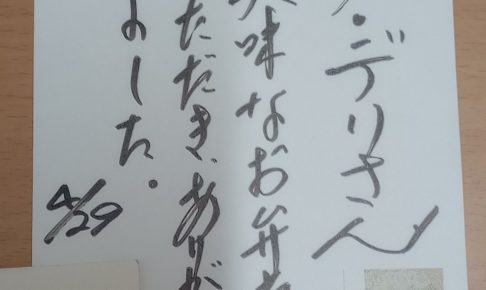 ・デリさん
味なお弁
ただき、ありが
ました。
4/29